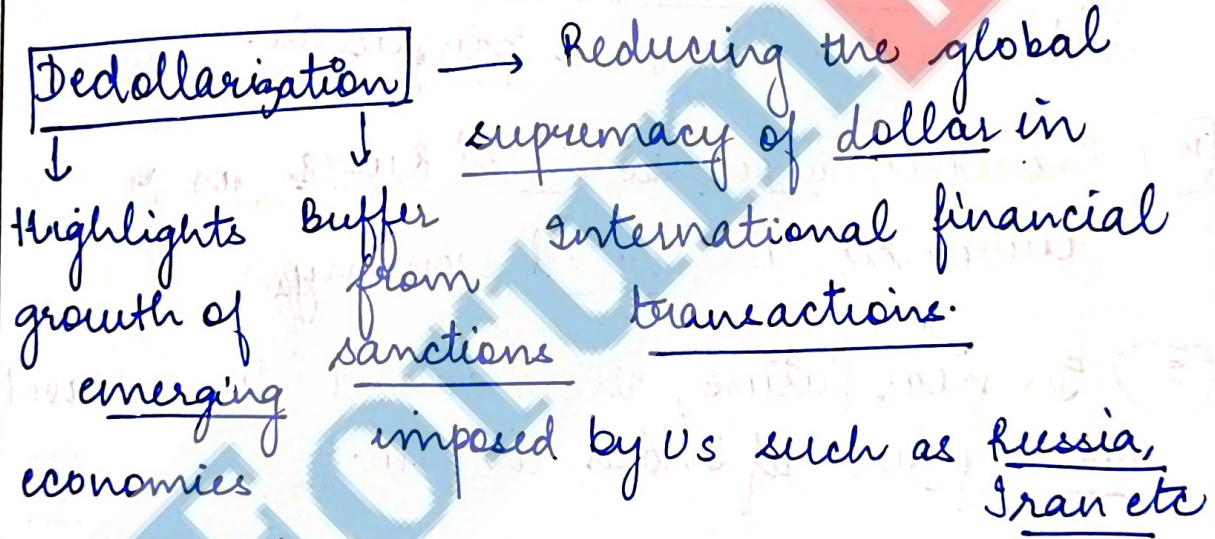 Dedollarization → Reducing the global
supremacy of dollar in
International financial
transactions.
↓ ↓
Highlights
growth of
emerging
economies
Buffer
from
sanctions
imposed by US such as Russia,
Iran etc
Forum